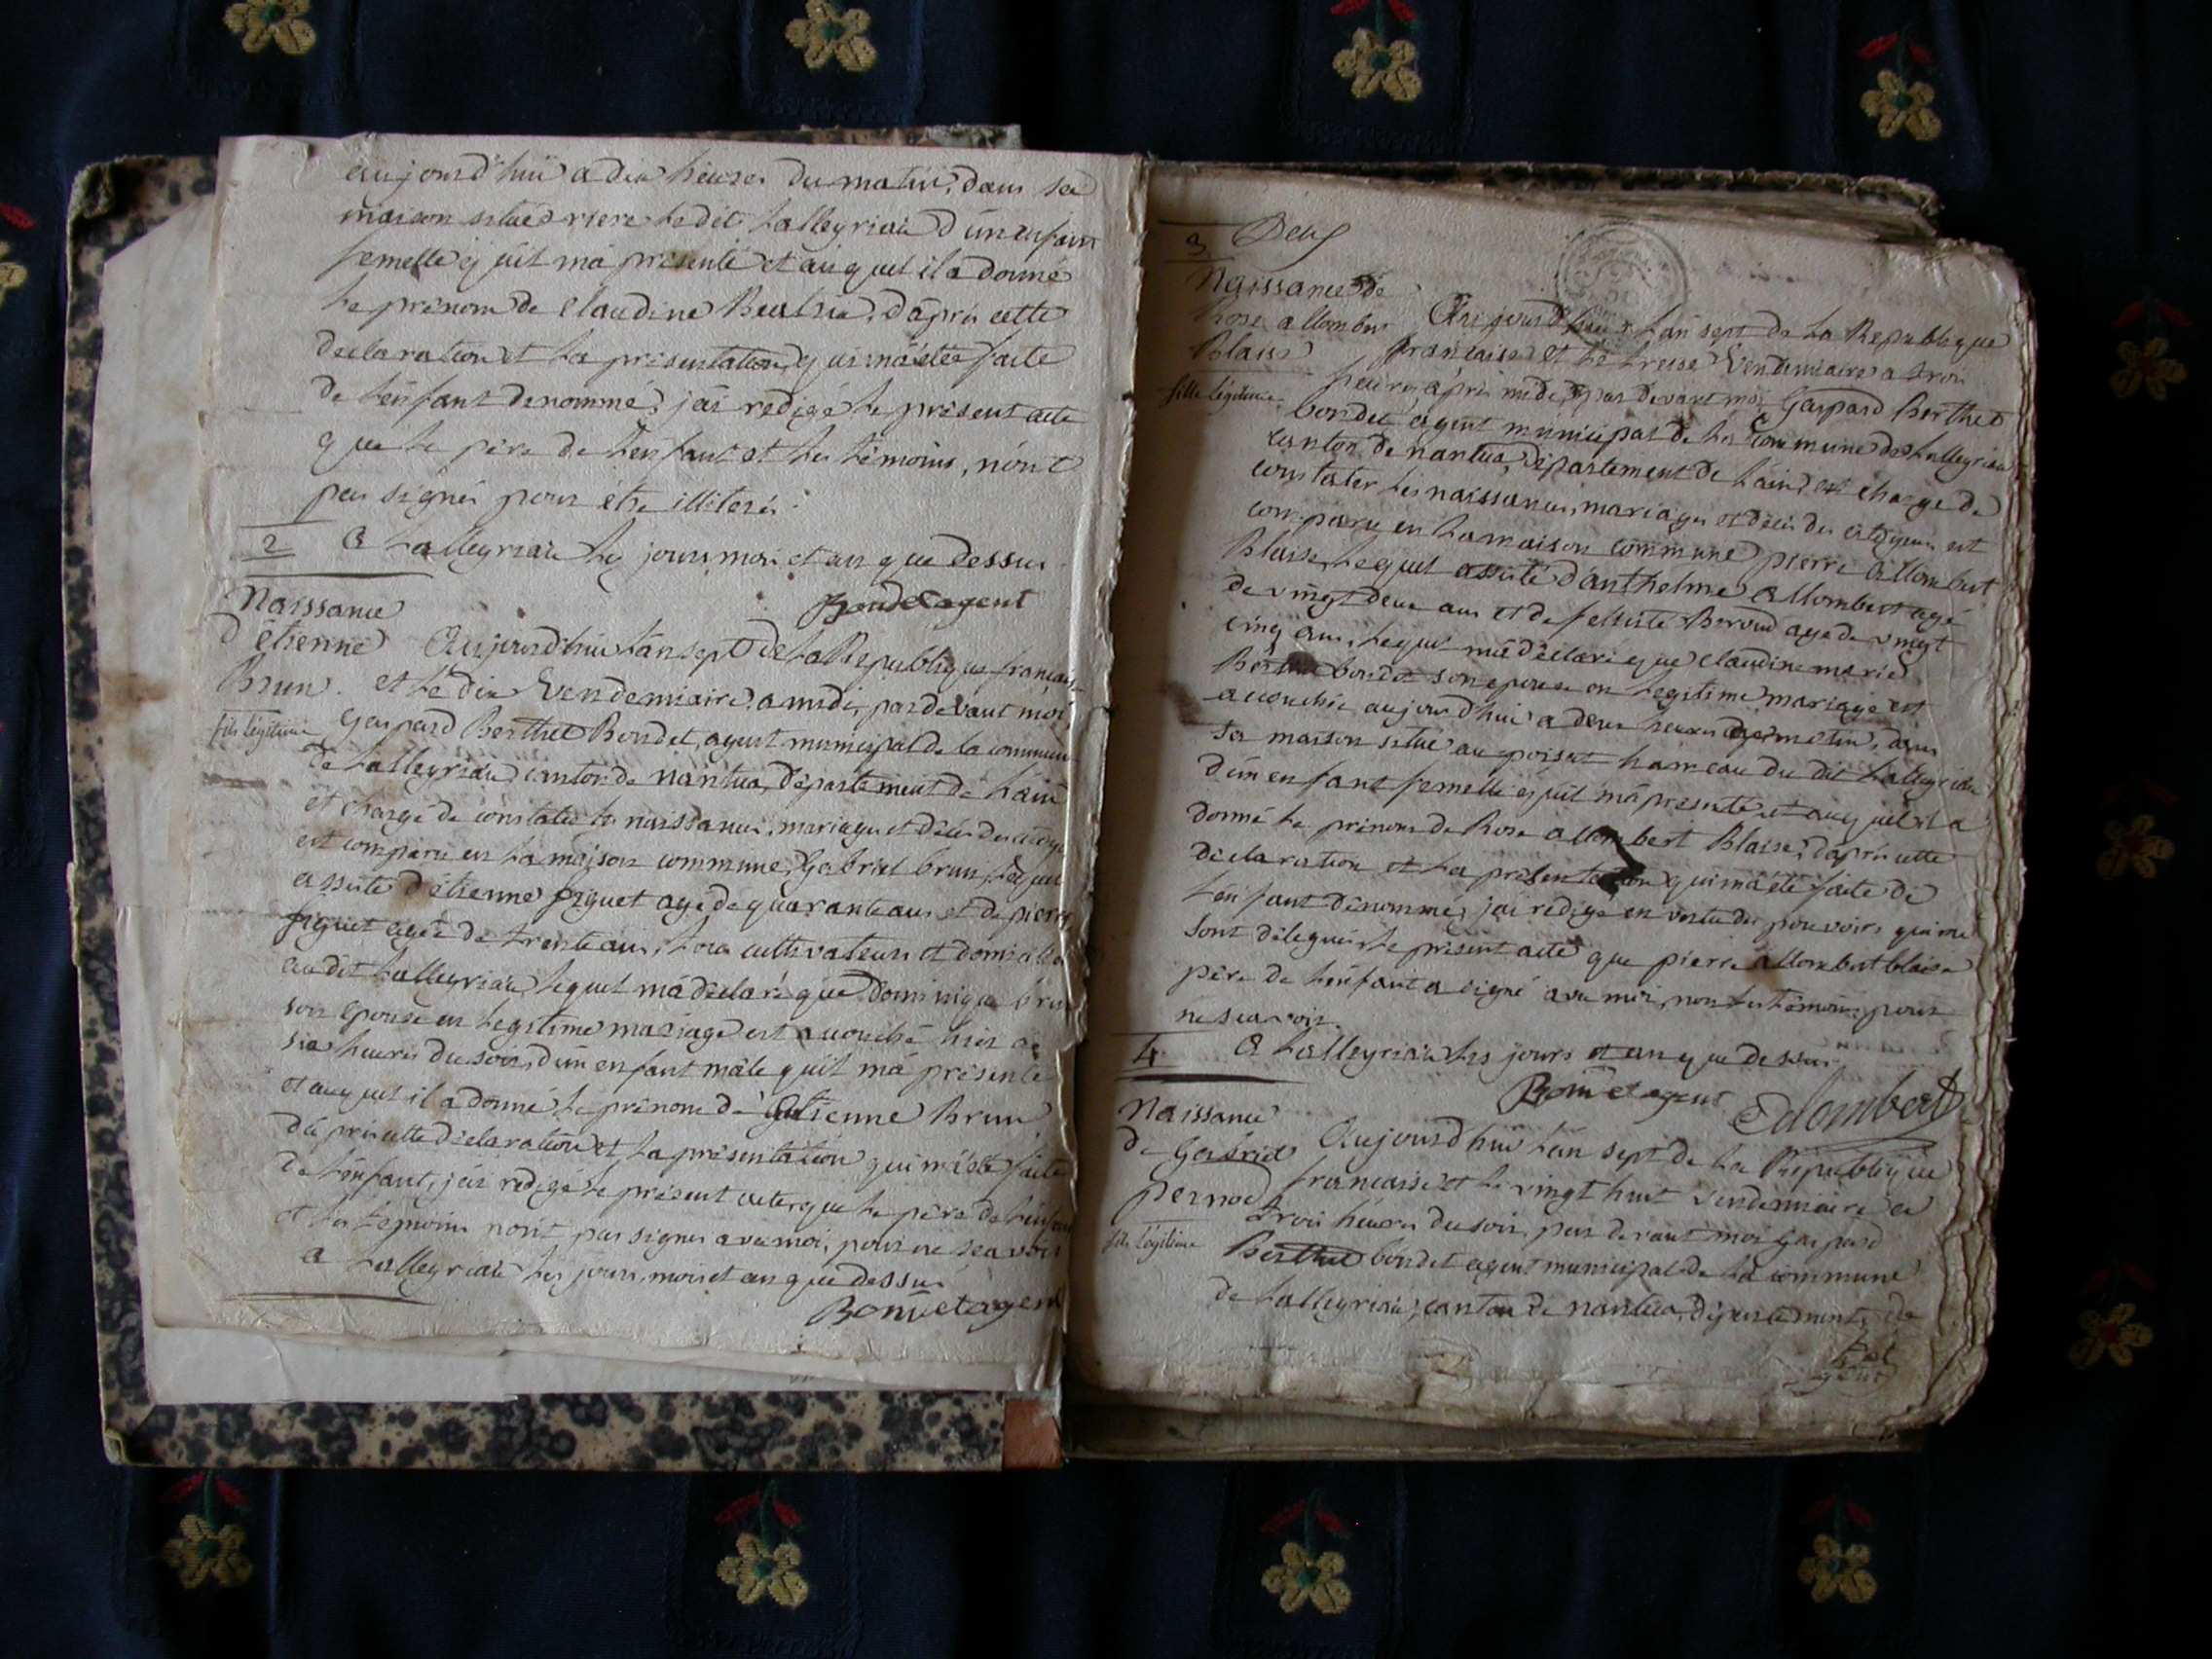 aujourd'hui a dix heures du matin, dans sa
maison situé riere le dit Lalleyriat d'un enfant
femelle qu'il m'a presenté et auquel il a donné
le prénom de Claudine Beatrix, d'après cette
declaration et la présentation qui m'a étée faite
de l'enfant denommé, j'ai redigé le présent acte
que le père de l'enfant et les témoins, n'ont
pas signés pour être illiterés.
2 A Lalleyriat les jours, mois et an que dessus
Bondet agent
Naissance
d'étienne
Brun.
fils légitime
Aujourd'hui l'an sept de la Republique francaise
et le dix Vendemiaire a midi, pardevant moi,
Gaspard Berthet Bondet, agent municipal de la commune
de Lalleyriat canton de nantua, département de l'ain
et chargé de constater les naissances, mariages et décès des citoy
est comparu en la maison commune, Gabriel brun, lequel
assisté d'étienne figuet agé de quarante ans et de pierre
figuet agée de trente ans, tous cultivateurs et domicilié
au dit Lalleyriat, lequel m'a déclaré que Dominique brun
son épouse en legitime mariage est accouché hier a
six heures du soir, d'un enfant mâle qu'il m'a présenté
et auquel il a donné le prénom d'étienne Brun
d'après cette déclaration et la présentation qui m'a été faite
de l'enfant, j'ai redigé le présent acte que le père de l'enfant
et les témoins n'ont pas signés avec moi, pour ne sçavoir
a Lalleyriat les jours, mois et an que dessus
Bondet agent
Deux
3
Naissance de
Rose allombert
Blaise
fille légitime
Aujourd'hui l'an sept de la Republique
francaise et le treise Vendemiaire a trois
heures après midi, pardevant moi Gaspard Berthet
bondet agent municipal de la commune de Lalleyriat
canton de nantua, département de l'ain, et chargé de
constater les naissances, mariages et décès des citoyens est
comparu en la maison commune pierre allombert
Blaise, lequel assisté d'anthelme allombert agé
de vingt deux ans et de felicité Berrod agé de vingt
cinq ans, lequel m'a déclaré que claudine marie
Berthet bondet son epouse en legitime mariage est
accouchée aujourd'hui a deux heures du matin, dans
sa maison situé au poisat hameau du dit Lalleyriat
d'un enfant femelle qu'il m'a presenté et auquel il a
donné le prénom de Rose allombert Blaise, d'après cette
déclaration et la présentation qui m'a été faite de
l'enfant dénommé, j'ai redigé en vertu des pouvoirs qui me
sont délegués le présent acte que pierre allombert blaise
père de l'enfant a signé avec moi, non les témoins pour
ne sçavoir.
4 A Lalleyriat les jours et an que dessus
Bondet agent Allombert
Naissance
de Gabriel
pernod
fils légitime
Aujourd'hui l'an sept de la Republique
francaise et le vingt huit vendemiaire a
trois heures du soir, par devant moi Gaspard
Berthet bondet agent municipal de la commune
de Lalleyriat, canton de nantua, département de